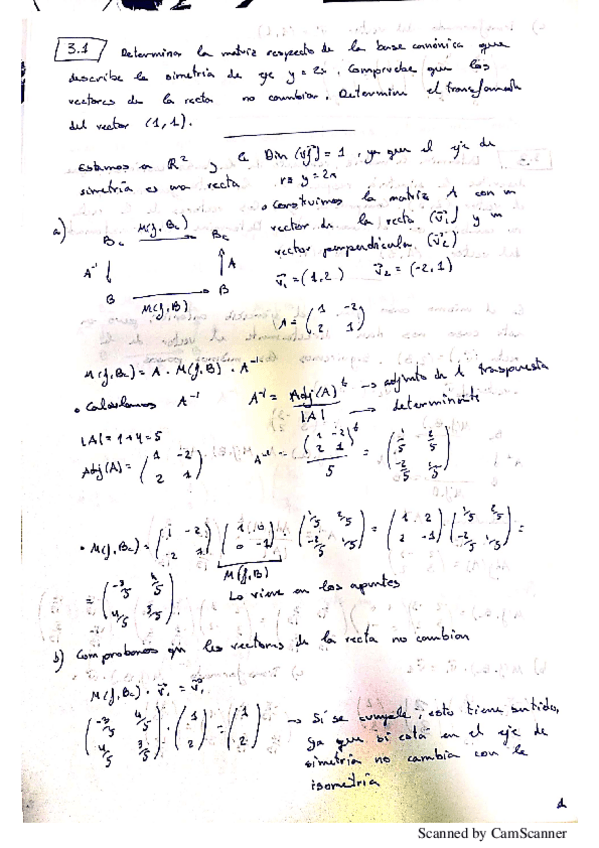 3.1 Determinar la matriz respecto de la base canónica que
describe la simetría de eje y = 2x. Comprueba que los
vectores de la recta no cambian. Determina el transformado
del vector (1,1).
Estamos en R² y la Dim (Vf) = 1, ya que el eje de
simetría es una recta r≡ y=2x
a) Bc M(f,Bc) Bc
A⁻¹ ↓ ↑ A
B M(f,B) B
• Construimos la matriz A con un
vector de la recta (v⃗₁) y un
vector perpendicular (v⃗₂)
v⃗₁ = (1,2) v⃗₂ = (-2,1)
A = (1 -2
2 1)
M(f,Bc) = A · M(f,B) · A⁻¹
• Calculamos A⁻¹ A⁻¹ = Adj(A)ᵗ / |A| → adjunto de la traspuesta
→ determinante
|A| = 1+4 = 5
Adj(A) = (1 -2
2 1) A⁻¹ = (1 -2
2 1)ᵗ / 5 = (1/5 2/5
-2/5 1/5)
• M(f,Bc) = (1 -2
2 1) (1 0
0 -1) · (1/5 2/5
-2/5 1/5) = (1 2
2 -1) · (1/5 2/5
-2/5 1/5) =
M(f,B)
= (-3/5 4/5
4/5 3/5) Lo viene en los apuntes
b) Comprobamos que los vectores de la recta no cambian
M(f,Bc) · v⃗₁ = v⃗₁
(-3/5 4/5
4/5 3/5) · (1
2) = (1
2) → Sí se cumple, esto tiene sentido,
ya que si está en el eje de
simetría no cambia con la
isometría
1
Scanned by CamScanner